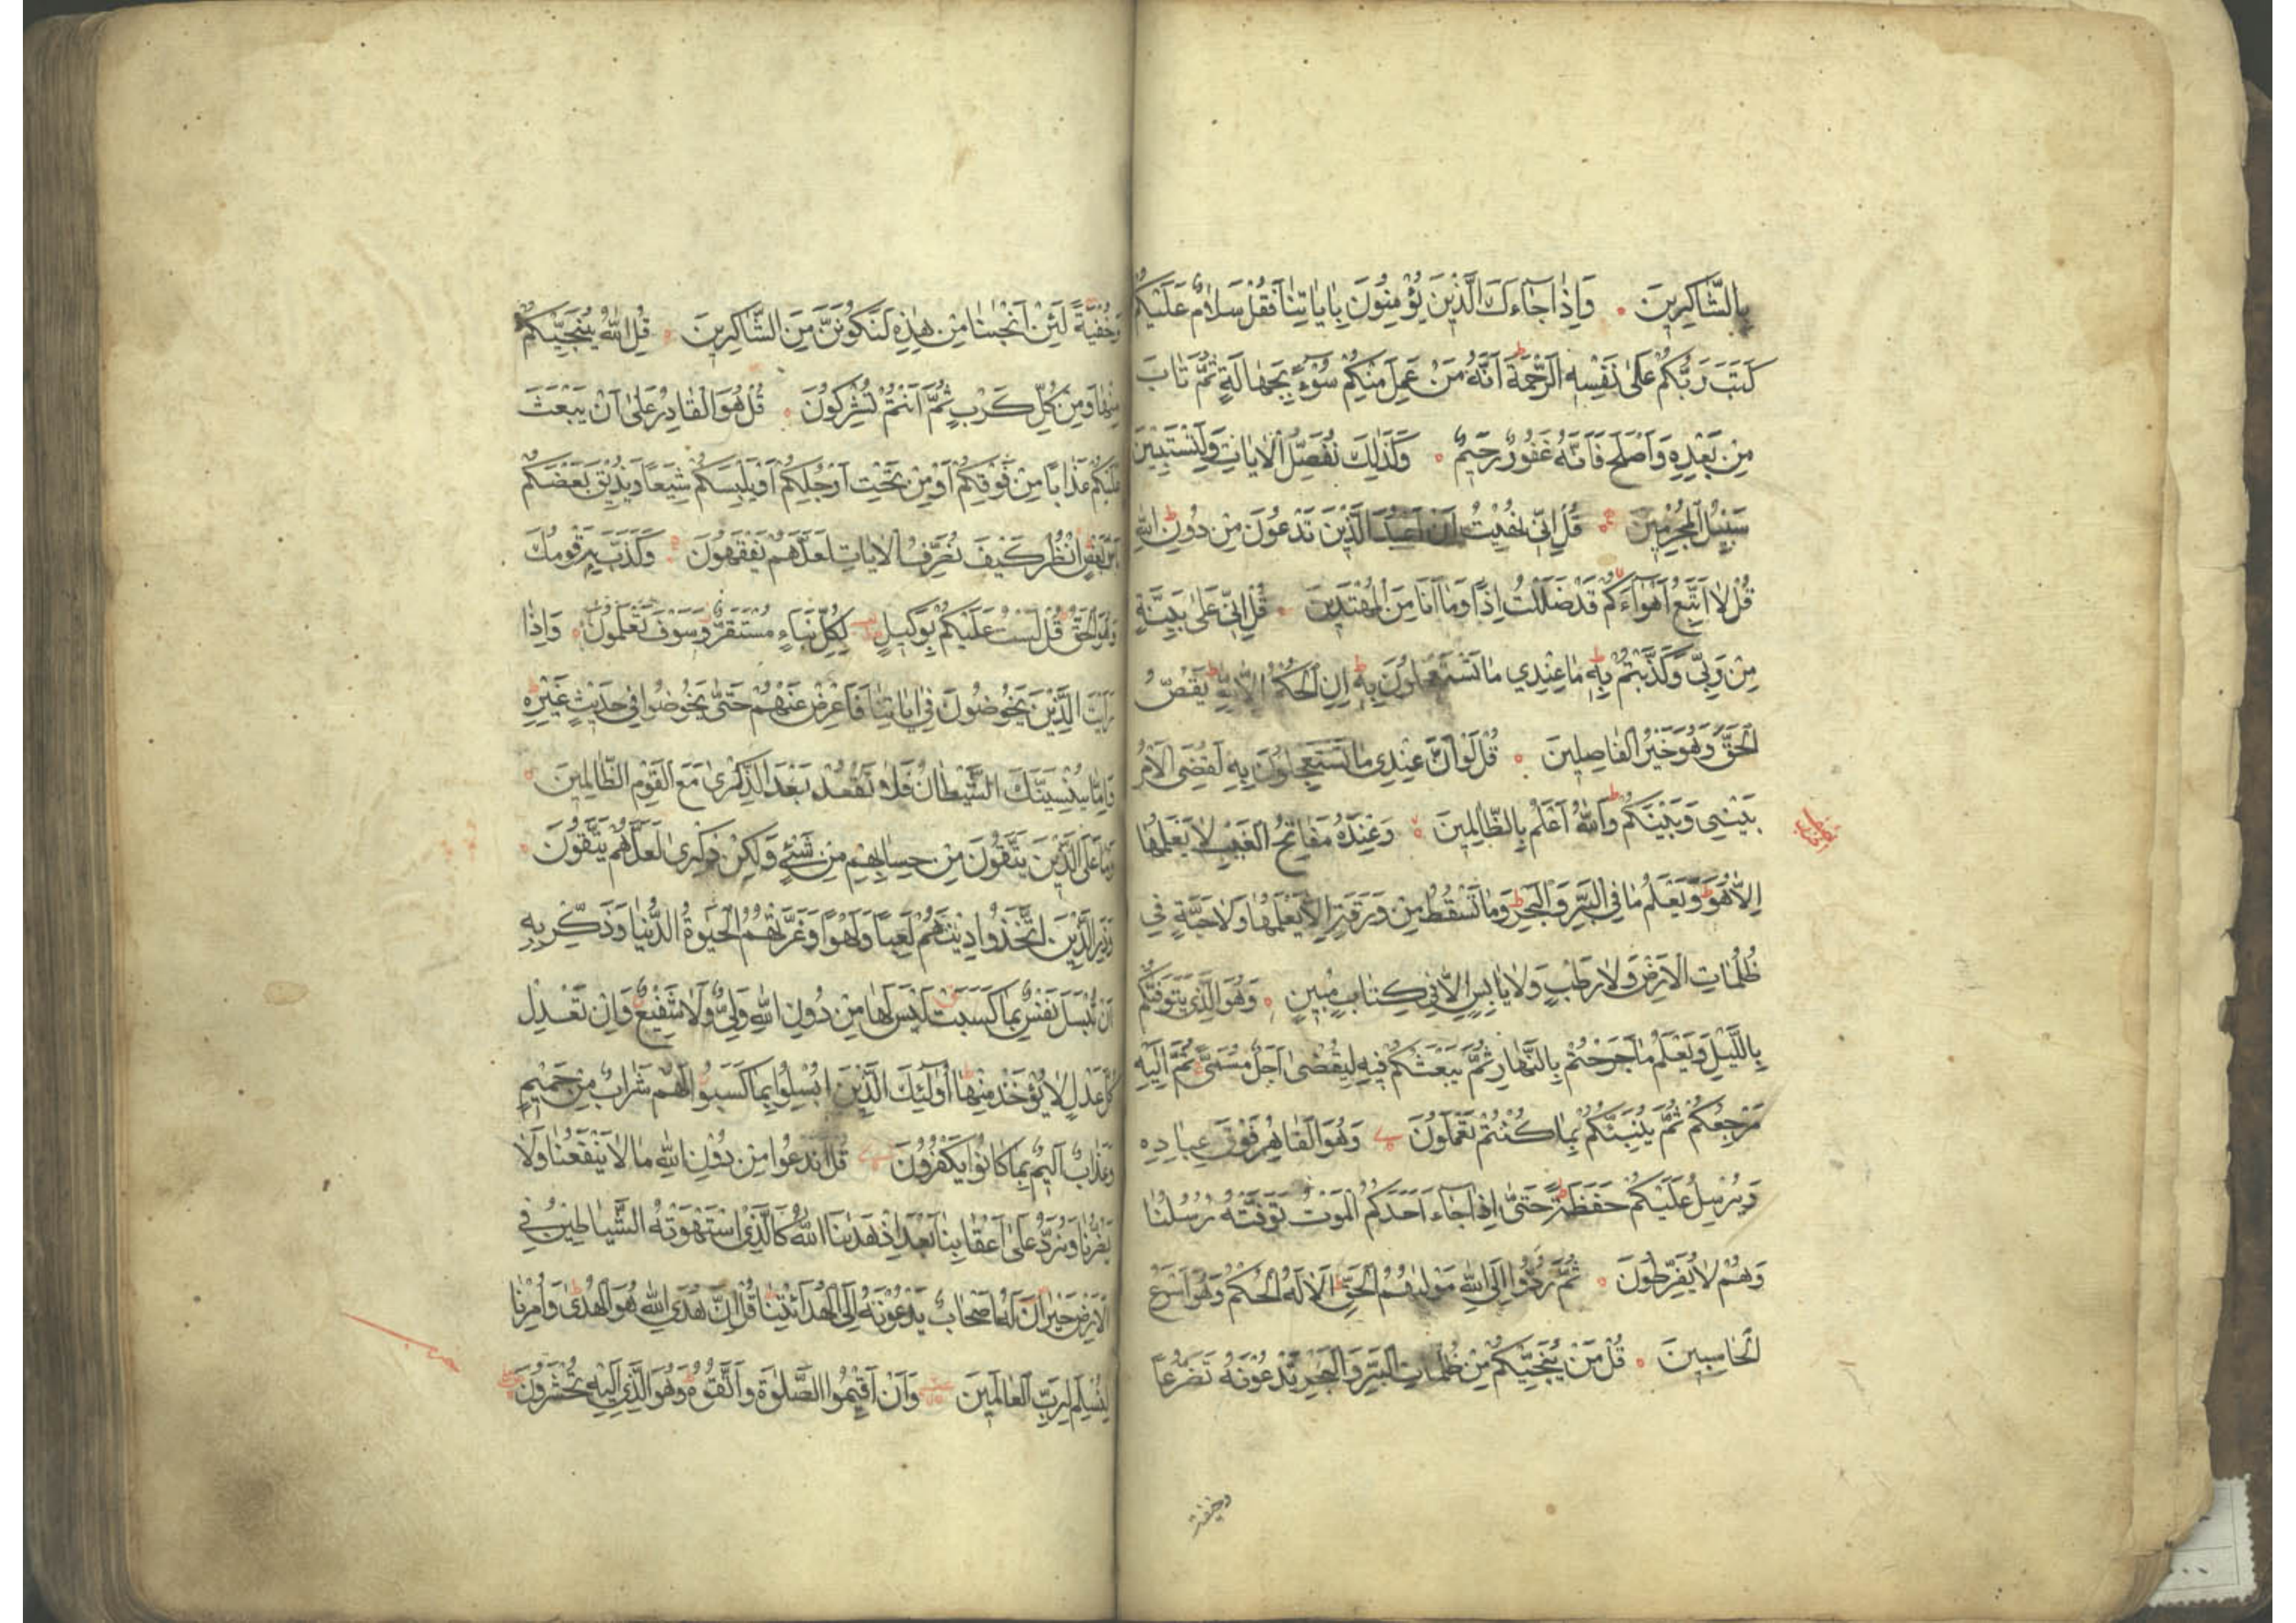 بِالشَّاكِرِينَ ۰ وَاِذَا جَاءَكَ الَّذِينَ يُؤْمِنُونَ بِاٰيَاتِنَا فَقُلْ سَلَامٌ عَلَيْكُمْ
كَتَبَ رَبُّكُمْ عَلٰى نَفْسِهِ الرَّحْمَةَ اَنَّهُ مَنْ عَمِلَ مِنْكُمْ سُوْءً بِجَهَالَةٍ ثُمَّ تَابَ
مِنْ بَعْدِهِ وَاَصْلَحَ فَاَنَّهُ غَفُورٌ رَحِيمٌ ۰ وَكَذٰلِكَ نُفَصِّلُ الْاٰيَاتِ وَلِتَسْتَبِيْنَ
سَبِيلُ الْمُجْرِمِينَ ۰ قُلْ اِنِّي نُهِيْتُ اَنْ اَعْبُدَ الَّذِيْنَ تَدْعُوْنَ مِنْ دُونِ اللّٰهِ
قُلْ لَا اَتَّبِعُ اَهْوَآءَكُمْ قَدْ ضَلَلْتُ اِذًا وَمَا اَنَا مِنَ الْمُهْتَدِينَ ۰ قُلْ اِنِّي عَلٰى بَيِّنَةٍ
مِنْ رَبِّي وَكَذَّبْتُمْ بِهِ مَا عِنْدِي مَا تَسْتَعْجِلُونَ بِهِ اِنِ الْحُكْمُ اِلَّا لِلّٰهِ يَقُصُّ
الْحَقَّ وَهُوَ خَيْرُ الْفَاصِلِينَ ۰ قُلْ لَوْ اَنَّ عِنْدِي مَا تَسْتَعْجِلُونَ بِهِ لَقُضِيَ الْاَمْرُ
بَيْنِي وَبَيْنَكُمْ وَاللّٰهُ اَعْلَمُ بِالظَّالِمِينَ ۰ وَعِنْدَهُ مَفَاتِحُ الْغَيْبِ لَا يَعْلَمُهَا
اِلَّا هُوَ وَيَعْلَمُ مَا فِي الْبَرِّ وَالْبَحْرِ وَمَا تَسْقُطُ مِنْ وَرَقَةٍ اِلَّا يَعْلَمُهَا وَلَا حَبَّةٍ فِي
ظُلُمَاتِ الْاَرْضِ وَلَا رَطْبٍ وَلَا يَابِسٍ اِلَّا فِي كِتَابٍ مُبِينٍ ۰ وَهُوَ الَّذِي يَتَوَفّٰكُمْ
بِاللَّيْلِ وَيَعْلَمُ مَا جَرَحْتُمْ بِالنَّهَارِ ثُمَّ يَبْعَثُكُمْ فِيهِ لِيُقْضٰى اَجَلٌ مُسَمًّى ثُمَّ اِلَيْهِ
مَرْجِعُكُمْ ثُمَّ يُنَبِّئُكُمْ بِمَا كُنْتُمْ تَعْمَلُونَ وَهُوَ الْقَاهِرُ فَوْقَ عِبَادِهِ
وَيُرْسِلُ عَلَيْكُمْ حَفَظَةً حَتّٰى اِذَا جَاءَ اَحَدَكُمُ الْمَوْتُ تَوَفَّتْهُ رُسُلُنَا
وَهُمْ لَا يُفَرِّطُونَ ۰ ثُمَّ رُدُّوا اِلَى اللّٰهِ مَوْلٰيهُمُ الْحَقِّ اَلَا لَهُ الْحُكْمُ وَهُوَ اَسْرَعُ
الْحَاسِبِينَ ۰ قُلْ مَنْ يُنَجِّيكُمْ مِنْ ظُلُمَاتِ الْبَرِّ وَالْبَحْرِ تَدْعُونَهُ تَضَرُّعًا
وخفية
وَخُفْيَةً لَئِنْ اَنْجٰينَا مِنْ هٰذِهِ لَنَكُونَنَّ مِنَ الشَّاكِرِينَ ۰ قُلِ اللّٰهُ يُنَجِّيكُمْ
مِنْهَا وَمِنْ كُلِّ كَرْبٍ ثُمَّ اَنْتُمْ تُشْرِكُونَ ۰ قُلْ هُوَ الْقَادِرُ عَلٰى اَنْ يَبْعَثَ
عَلَيْكُمْ عَذَابًا مِنْ فَوْقِكُمْ اَوْ مِنْ تَحْتِ اَرْجُلِكُمْ اَوْ يَلْبِسَكُمْ شِيَعًا وَيُذِيقَ بَعْضَكُمْ
بَأْسَ بَعْضٍ اُنْظُرْ كَيْفَ نُصَرِّفُ الْاٰيَاتِ لَعَلَّهُمْ يَفْقَهُونَ ۰ وَكَذَّبَ بِهِ قَوْمُكَ
وَهُوَ الْحَقُّ قُلْ لَسْتُ عَلَيْكُمْ بِوَكِيلٍ لِكُلِّ نَبَاءٍ مُسْتَقَرٌّ وَسَوْفَ تَعْلَمُونَ ۰ وَاِذَا
رَاَيْتَ الَّذِيْنَ يَخُوضُونَ فِي اٰيَاتِنَا فَاَعْرِضْ عَنْهُمْ حَتّٰى يَخُوضُوا فِي حَدِيثٍ غَيْرِهِ
وَاِمَّا يُنْسِيَنَّكَ الشَّيْطَانُ فَلَا تَقْعُدْ بَعْدَ الذِّكْرٰى مَعَ الْقَوْمِ الظَّالِمِينَ ۰
وَمَا عَلَى الَّذِيْنَ يَتَّقُونَ مِنْ حِسَابِهِمْ مِنْ شَيْءٍ وَلٰكِنْ ذِكْرٰى لَعَلَّهُمْ يَتَّقُونَ ۰
وَذَرِ الَّذِيْنَ اتَّخَذُوا دِيْنَهُمْ لَعِبًا وَلَهْوًا وَغَرَّتْهُمُ الْحَيٰوةُ الدُّنْيَا وَذَكِّرْ بِهِ
اَنْ تُبْسَلَ نَفْسٌ بِمَا كَسَبَتْ لَيْسَ لَهَا مِنْ دُونِ اللّٰهِ وَلِيٌّ وَلَا شَفِيْعٌ وَاِنْ تَعْدِلْ
كُلَّ عَدْلٍ لَا يُؤْخَذْ مِنْهَا اُولٰئِكَ الَّذِيْنَ اُبْسِلُوا بِمَا كَسَبُوا لَهُمْ شَرَابٌ مِنْ حَمِيْمٍ
وَعَذَابٌ اَلِيْمٌ بِمَا كَانُوا يَكْفُرُونَ قُلْ اَنَدْعُوا مِنْ دُونِ اللّٰهِ مَا لَا يَنْفَعُنَا وَلَا
يَضُرُّنَا وَنُرَدُّ عَلٰى اَعْقَابِنَا بَعْدَ اِذْ هَدٰينَا اللّٰهُ كَالَّذِي اسْتَهْوَتْهُ الشَّيَاطِيْنُ فِي
الْاَرْضِ حَيْرَانَ لَهُ اَصْحَابٌ يَدْعُوْنَهُ اِلَى الْهُدَى ائْتِنَا قُلْ اِنَّ هُدَى اللّٰهِ هُوَ الْهُدٰى وَاُمِرْنَا
لِنُسْلِمَ لِرَبِّ الْعَالَمِيْنَ وَاَنْ اَقِيْمُوا الصَّلٰوةَ وَاتَّقُوهُ وَهُوَ الَّذِي اِلَيْهِ تُحْشَرُونَ